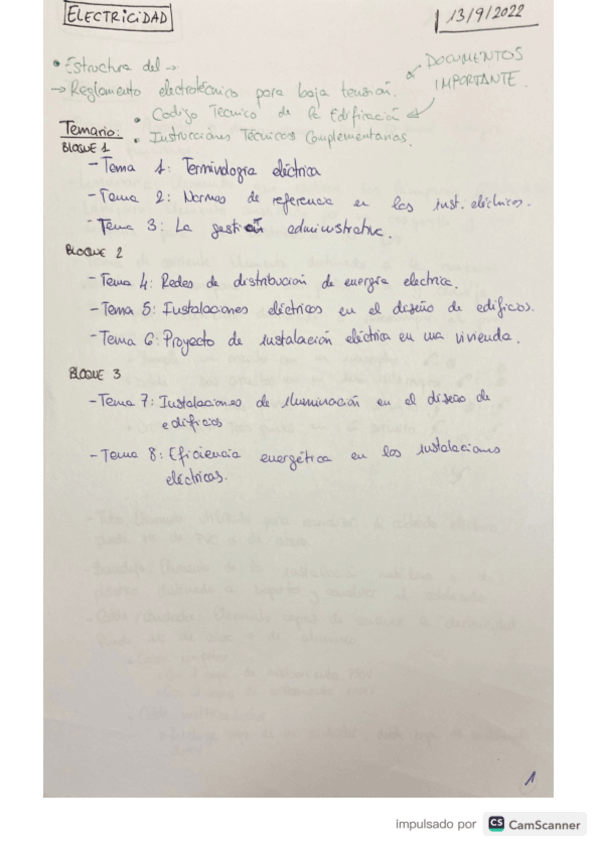 ELECTRICIDAD
13/9/2022
• Estructura del →
DOCUMENTOS
IMPORTANTE.
→ Reglamento electrotécnico para baja tensión.
• Codigo Técnico de la Edificación
Temario:
• Instruccións Técnicas Complementarias.
BLOQUE 1
- Tema 1: Terminología eléctrica
- Tema 2: Normas de referencia en las inst. eléctricas.
- Tema 3: La gestión administrativa.
BLOQUE 2
- Tema 4: Redes de distribución de energía electrica.
- Tema 5: Instalaciones eléctricas en el diseño de edificios.
- Tema 6: Proyecto de instalación eléctrica en una vivienda.
BLOQUE 3
- Tema 7: Instalaciones de iluminación en el diseño de
edificios
- Tema 8: Eficiencia energética en las instalaciones
eléctricas.
1
impulsado por CS CamScanner